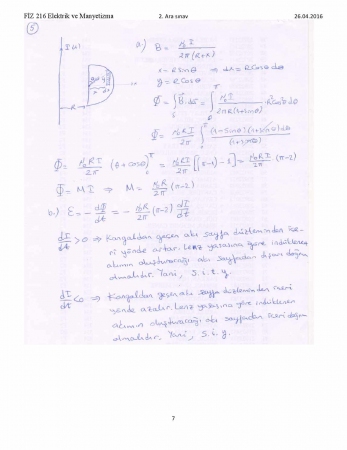 FİZ 216 Elektrik ve Manyetizma 2. Ara sınav 26.04.2016
5
I(t)
R
a) B = μ₀I / 2π(R+x)
x = R sinθ ⇒ dx = R cosθ dθ
y = R cosθ
Φ = ∫ B⃗.da⃗ = ∫ μ₀I / 2πR(1+sinθ) R²cos²θ dθ
Φ = μ₀RI / 2π ∫ (1-sinθ)(1+sinθ)dθ / (1+sinθ)
Φ = μ₀RI / 2π (θ+cosθ) = μ₀RI / 2π [(π-1)-1] = μ₀RI / 2π (π-2)
Φ = MI ⇒ M = μ₀R / 2π (π-2)
b.) ε = - dΦ/dt = - μ₀R / 2π (π-2) dI/dt
dI/dt > 0 ⇒ Kangaldan geçen akı sayfa düzleminden içe-
ri yönde artar. Lenz yasasına göre indüklenen
akımın oluşturacağı akı sayfadan dışarı doğru
olmalıdır. Yani, S.i.t.y.
dI/dt < 0 ⇒ Kangaldan geçen akı sayfa düzleminden içeri
yönde azalır. Lenz yasasına göre indüklenen
akımın oluşturacağı akı sayfadan içeri doğru
olmalıdır. Yani, S.i.y.
7